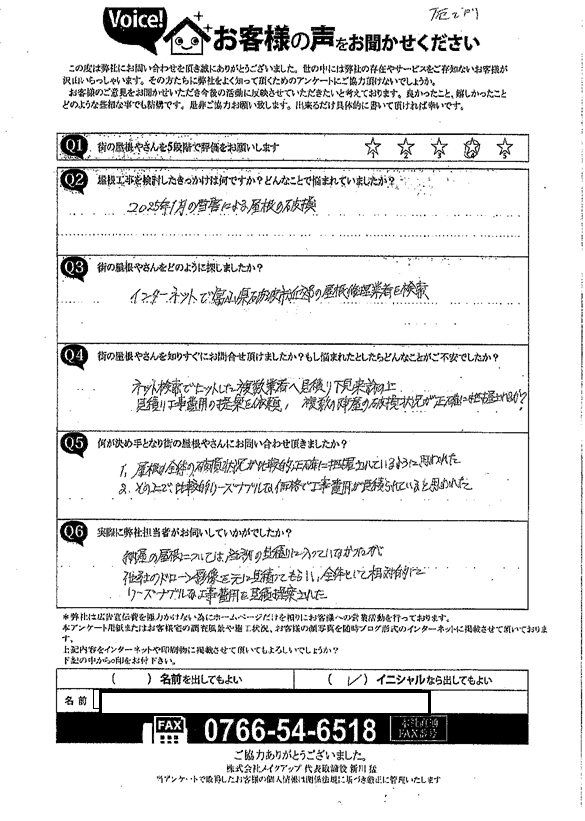 Voice!
お客様の声をお聞かせください
この度は弊社にお問い合わせを頂き誠にありがとうございました。世の中には弊社の存在やサービスをご存知ないお客様が
沢山いらっしゃいます。その方たちに弊社をよく知って頂くためのアンケートにご協力頂けないでしょうか。
お客様のご意見をお聞かせいただき今後の活動に反映させていただきたいと考えております。良かったこと、嬉しかったこと
どのような些細な事でも結構です。是非ご協力お願い致します。出来るだけ具体的に書いて頂ければ幸いです。
Q1 街の屋根やさんを5段階で評価をお願いします 1 2 3 4 5
Q2 屋根工事を検討したきっかけは何ですか？どんなことで悩まれていましたか？
2025年1月の雪害による屋根の破損
Q3 街の屋根やさんをどのように探しましたか？
インターネットで富山県砺波市近郊の屋根修理業者を検索
Q4 街の屋根やさんを知りすぐにお問合せ頂けましたか？もし悩まれたとしたらどんなことがご不安でしたか？
ネット検索でヒットした複数業者へ見積り下見来訪の上
見積り工事費用の提案を依頼，複数の陣屋の破損状況が正確に把握されるか？
Q5 何が決め手となり街の屋根やさんにお問い合わせ頂きましたか？
1、屋根全体の破損状況が比較的正確に把握されているように思われた
2、その上で比較的リーズナブルな価格で工事費用が見積られていると思われた
Q6 実際に弊社担当者がお伺いしていかがでしたか？
の屋根については当初の見積りに入っていなかったが
他社のドローン映像を元に見積ってもらい、全体として相対的に
リーズナブルな工事費用を見積提案された
＊弊社は広告宣伝費を極力かけない為にホームページだけを頼りにお客様への営業活動を行っております。
本アンケート用紙またはお客様宅の調査風景や施工状況、お客様の顔写真を随時ブログ形式のインターネットに掲載させて頂いておりま
す。
上記内容をインターネットや印刷物に掲載させて頂いてもよろしいでしょうか？
下記の中から○印をお付下さい。
（　）名前を出してもよい （✓）イニシャルなら出してもよい
名前
FAX 0766-54-6518
ご協力ありがとうございました。
株式会社メイクアップ 代表取締役 新川 猛
当アンケートで取得したお客様の個人情報は関係法規に基づき厳正に管理いたします